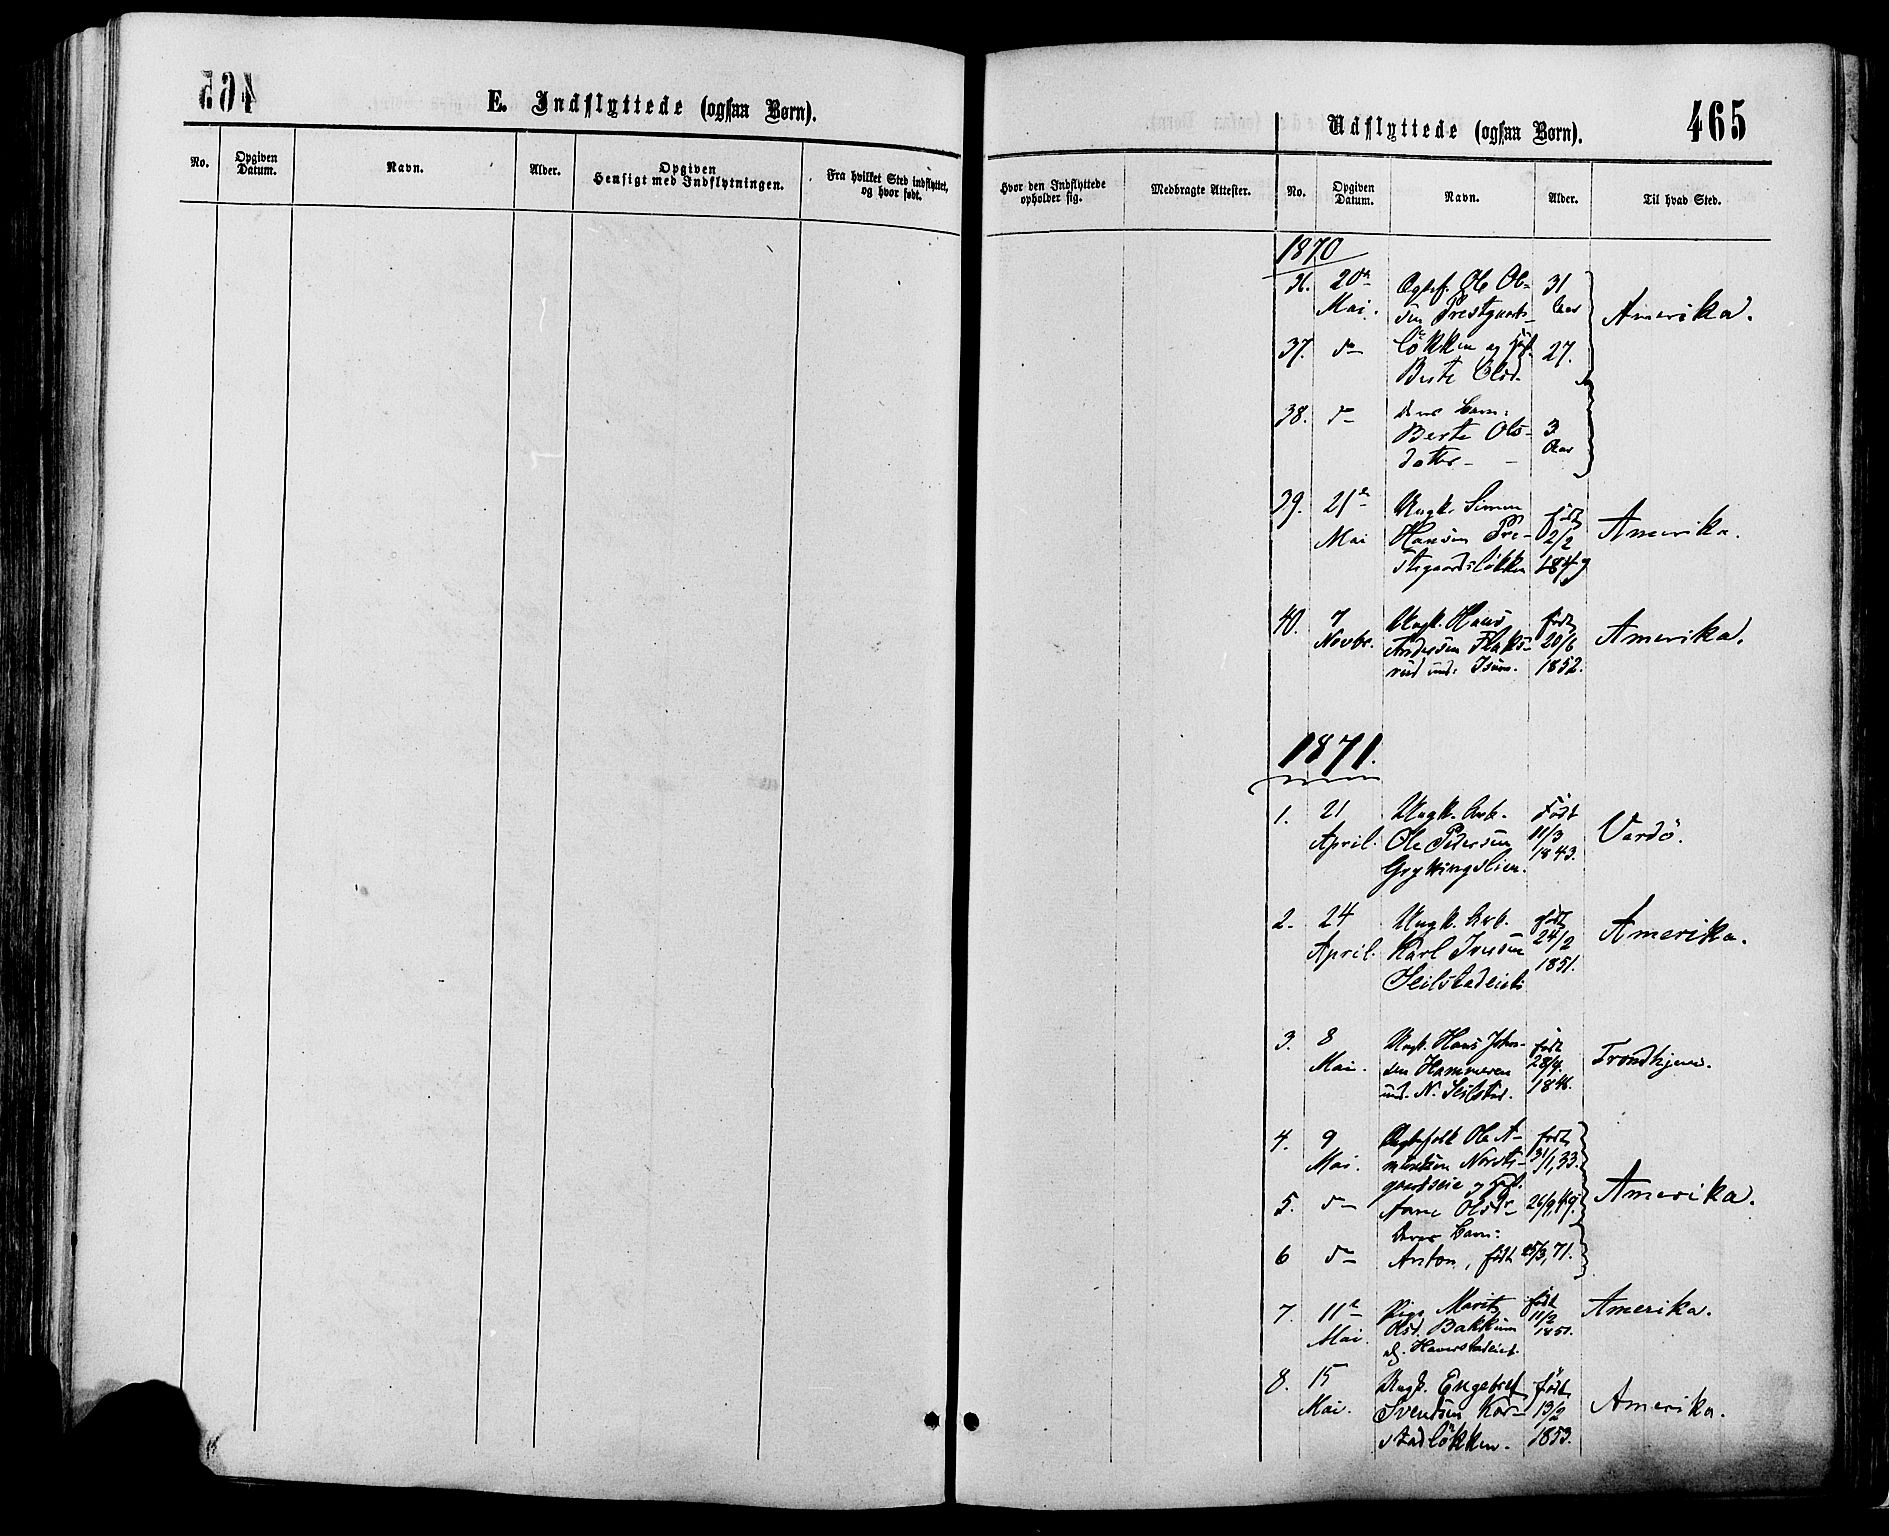 465
E. Indflyttede (ogsaa Børn).
No.
Opgiven
Datum.
Navn.
Alder.
Opgiven
Hensigt med Indflytningen.
Fra hvilket Sted indflyttet,
og hvor født.
Hvor den Indflyttede
opholder sig.
Medbragte Attester.
Udflyttede (ogsaa Børn).
465
No.
Opgiven
Datum.
Navn.
Alder.
Til hvad Sted.
1870
36. 20de Ole Ol- 31
Mai. sen Prestgaards- Aar Amerika.
37. do løkken og 27.
Berte Olsd.
38. do deres Barn:
Berte Ols- 3
datter Aar
39. 21de Ungk. Simen født
Mai Hansen Pre- 2/2 Amerika.
stegaardsløkken 1849
40. 7 Ungk. Hans født
Novbr. Andersen Flaks- 20/6 Amerika.
rud und: Isum. 1852.
1871.
1. 21 Ungk. Arb. født
April. Ole Pedersen 11/3 Vardö.
Gryttingslien. 1843.
2. 24 Ungk. Arb. født
April. Karl Iversen 24/2 Amerika.
Seilstadeiet 1851.
3. 8 Ungk. Hans John- født
Mai. sen Hammeren Trondhjem.
und. N. Seilstad. 1846.
4. 9 Ægtefolk Ole A- født
Mai. mundsen Nords- 31/1, 33.
gaardseie og
5. do Anne Olsdr 26/9, 49. Amerika.
deres Barn:
6 do Anton, født 25/3, 71.
7. 11te Pige Marit født Amerika.
Mai. Olsd. Bakkum 11/2
Haverstadeiet. 1851.
8. 15 Ungk. Engebret født
Mai. Svendsen Kor- 13/2 Amerika.
stadløkken. 1853.